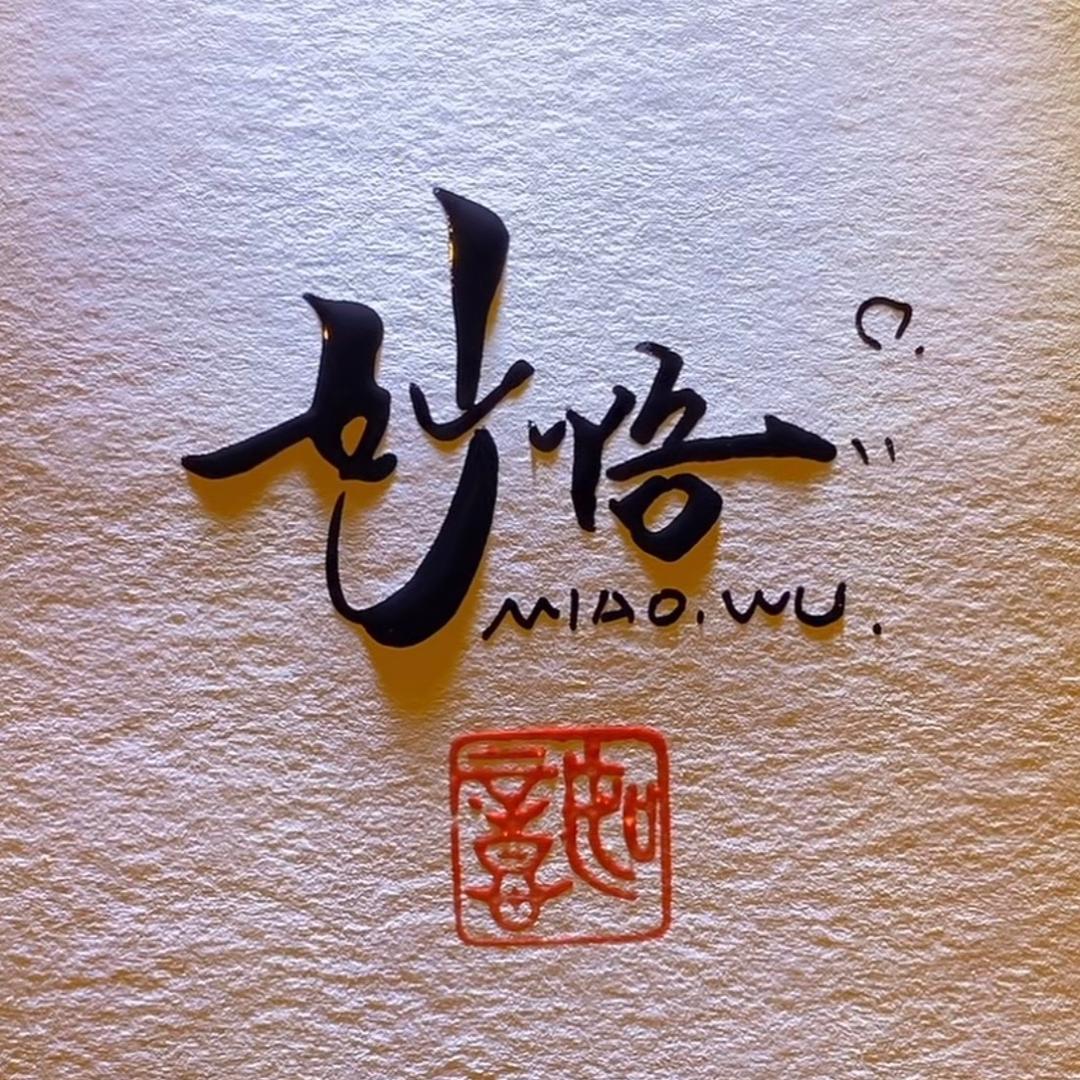 妙悟
MIAO.WU.